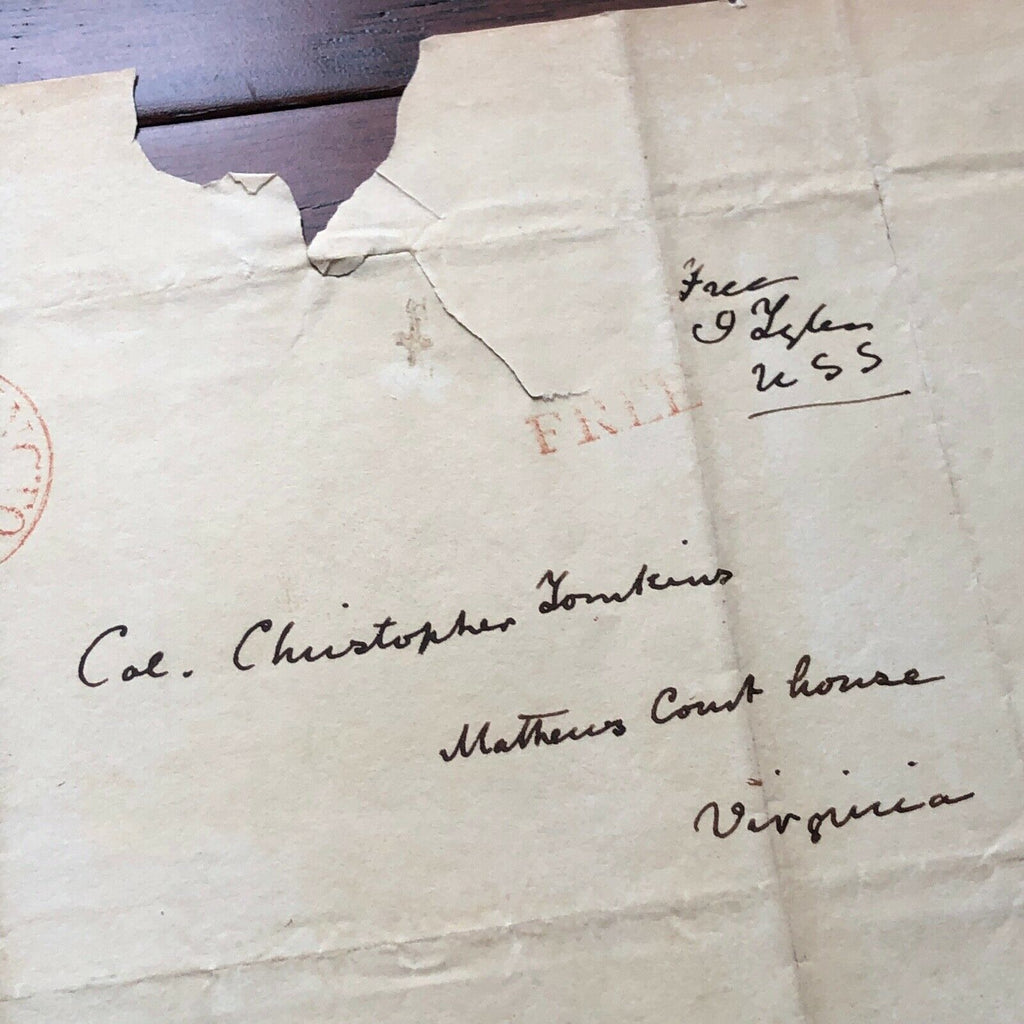 Free
J Tyler
U S S
FREE
Col. Christopher Tomkins
Mathews Court house
Virginia